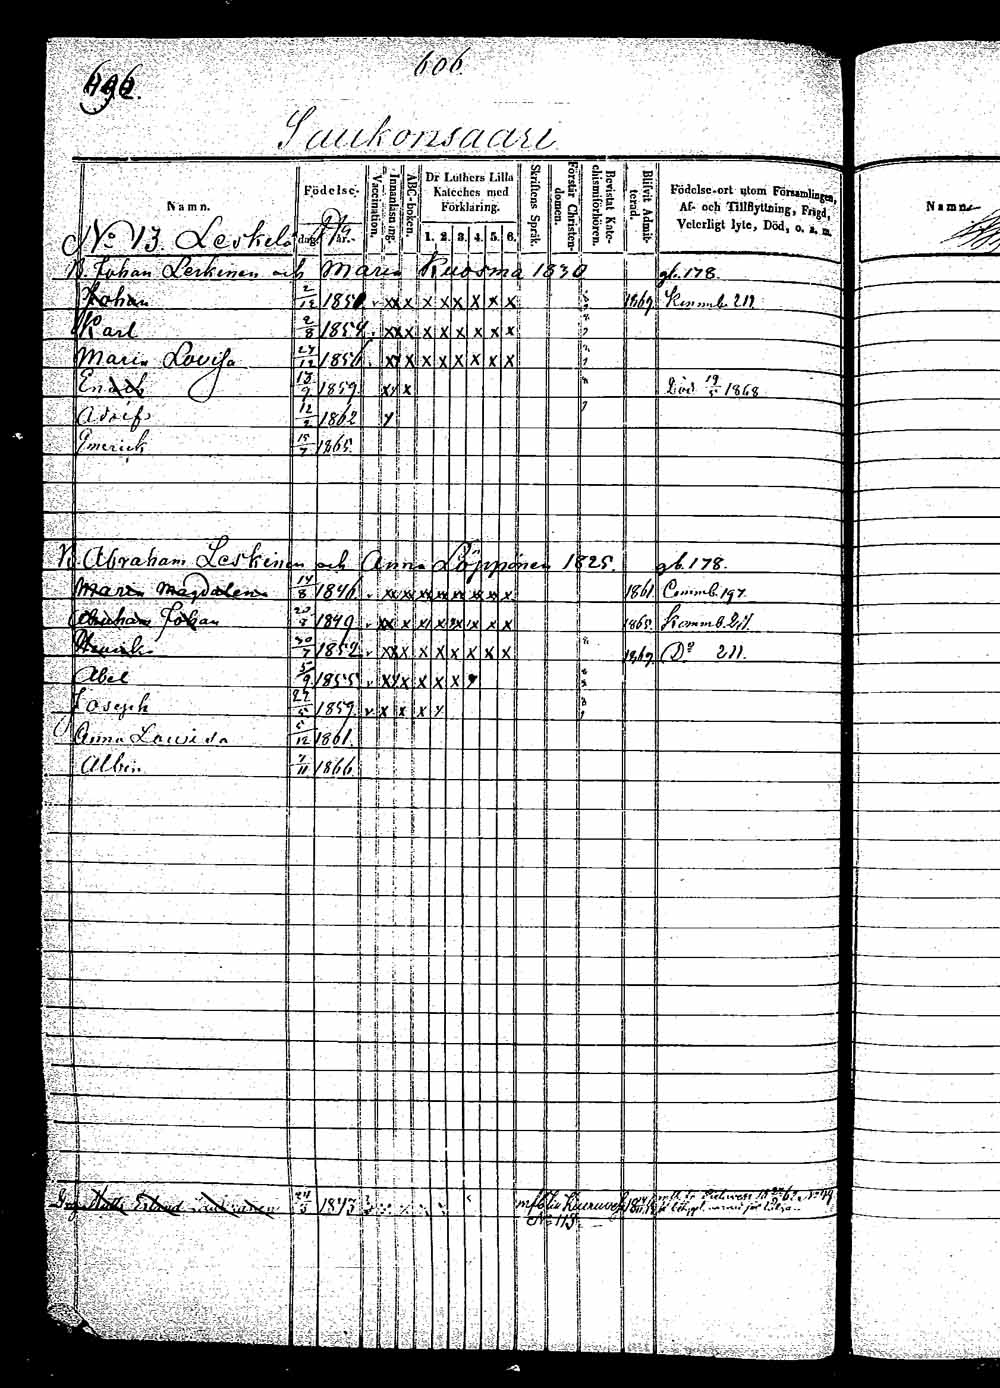 606.
Saukonsaari
Namn.
Födelse-
dag. år.
Vaccination.
Innanläsning.
ABC-boken.
Dr Luthers Lilla Kateches med Förklaring.
1. 2. 3. 4. 5. 6.
Skriftens Språk.
Förstår Christendomen.
Bevistat Katechismiförhören.
Blifvit Admitterad.
Födelse-ort utom Församlingen, Af- och Tillflyttning, Frigd, Veterligt lyte, Död, o. s. m.
Namn
No 13. Leskelä
Johan Leskinen och Maria Kuosma 1830 gb. 178.
Johan 2/12 1850 v xx x x x x x x x 1869. Kommb. 211
Karl 2/8 1854 xx x x x x x x x
Maria Lovisa 24/12 1856 xx x x x x x x x
Enoch 13/9 1859 xx x Död 19/5 1868
Adolf 12/2 1862
Emerick 15/7 1865
Abraham Leskinen och Anna Löppönen 1825. gb. 178.
Maria Magdalena 14/8 1846 v 1861. Commb. 197.
Abraham Johan 20/8 1849 v 1865. Kommb. 211.
Henrik 30/7 1852 v xx x x x x x x x 1869. Do 211.
Abel 5/9 1855 v xx x x x x
Joseph 22/5 1859 v x x x
Anna Lovisa 5/12 1861.
Albin 7/11 1866
1843 Kiuruvesi
No 115